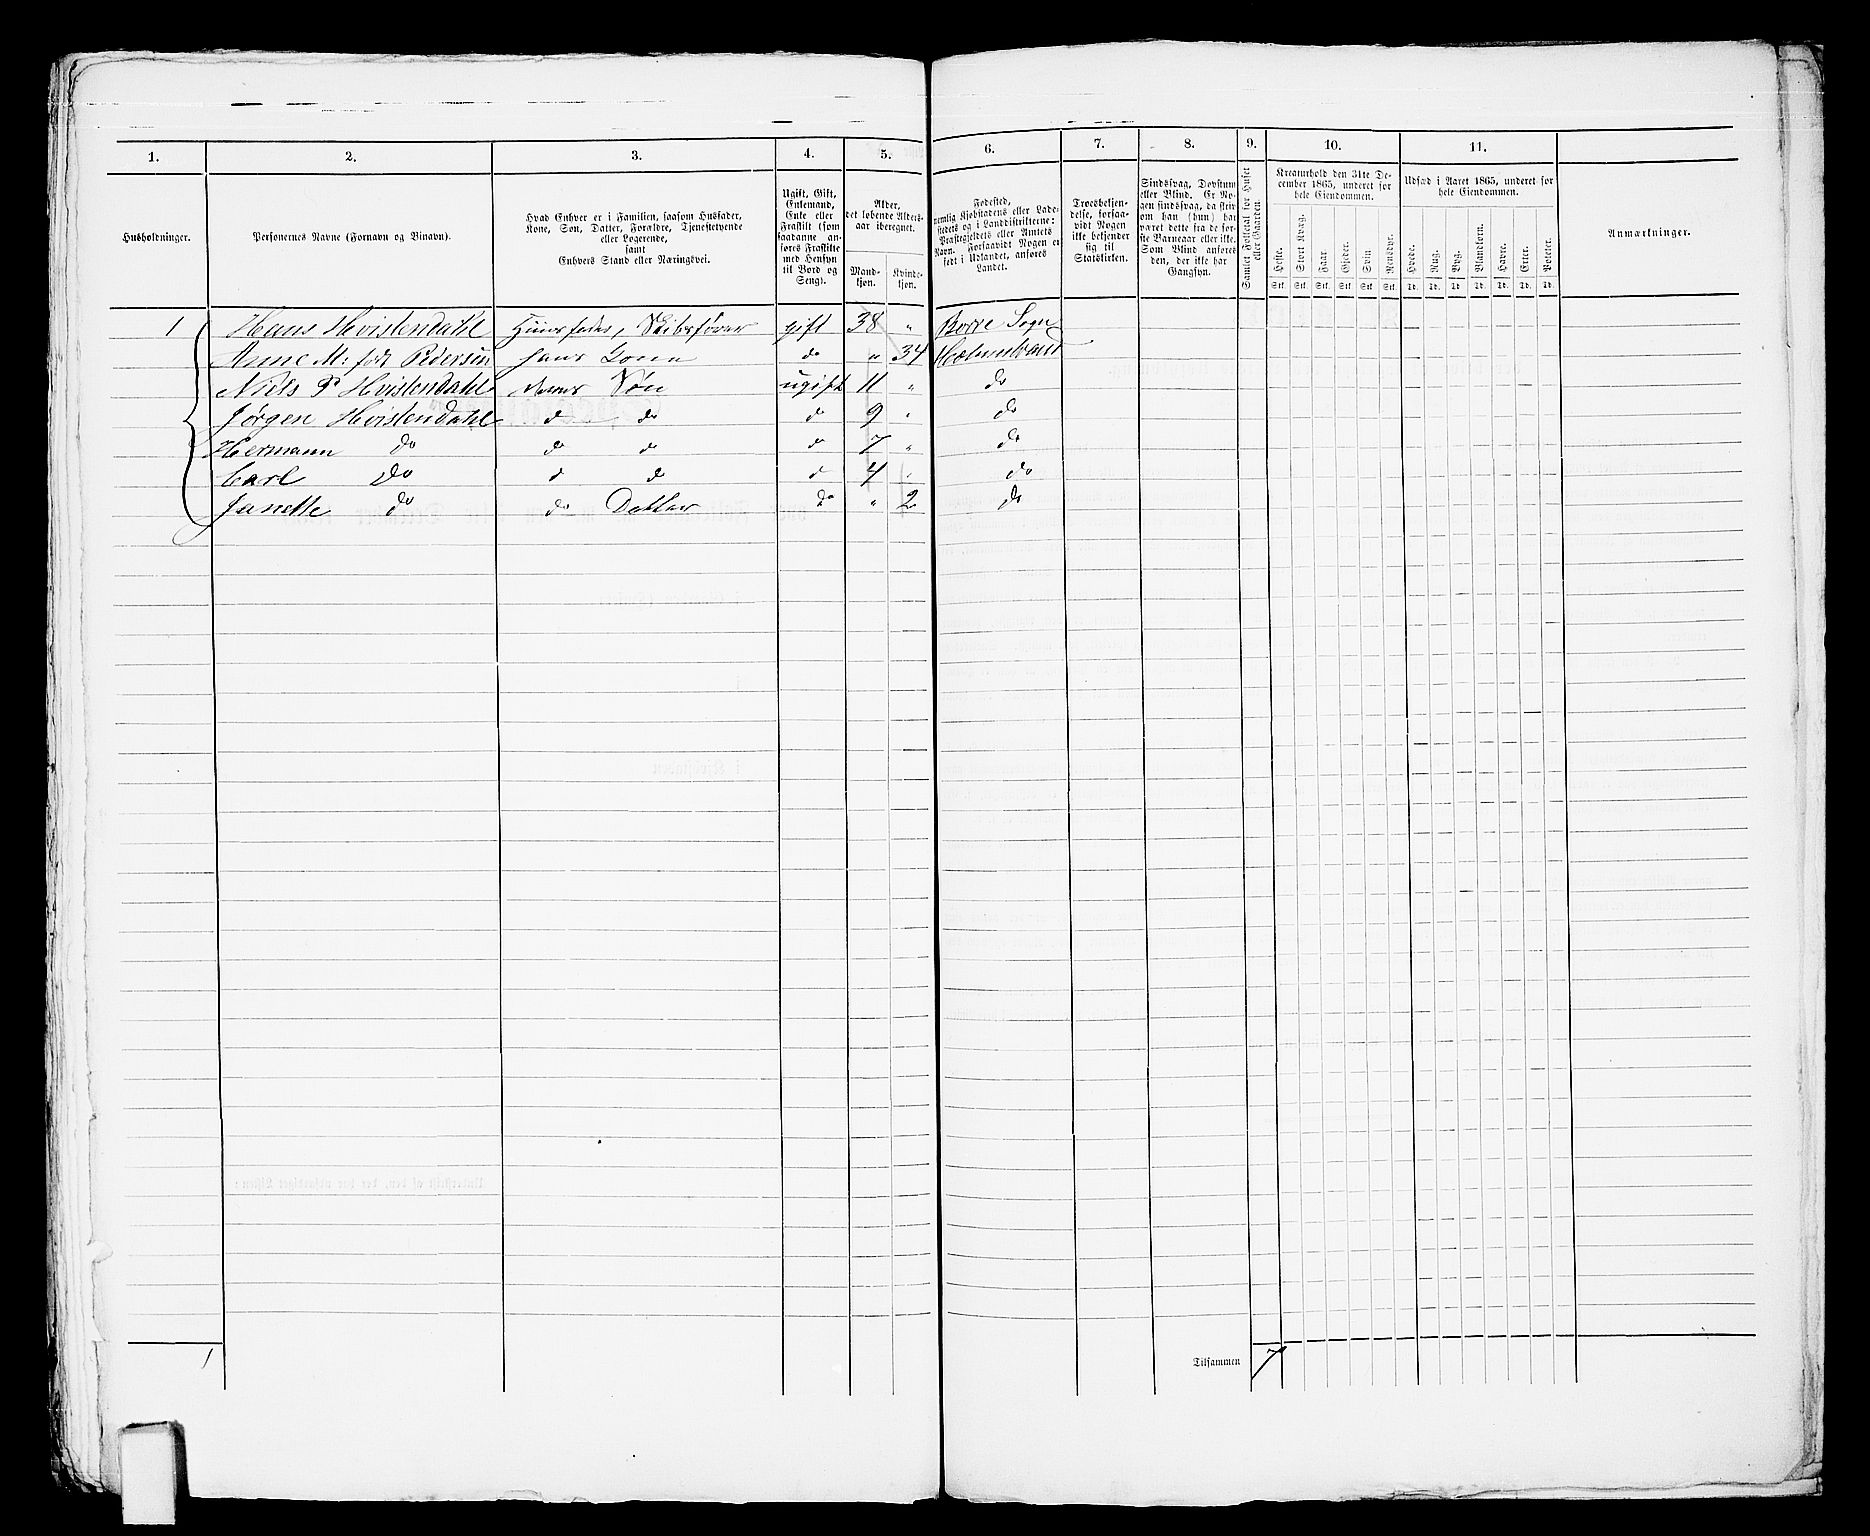 1. 2. 3. 4. 5. 6. 7. 8. 9. 10. 11.
Husholdninger.
Personernes Navne (Fornavn og Binavn).
Hvad Enhver er i Familien, saasom Husfader,
Kone, Søn, Datter, Forældre, Tjenestetyende
eller Logerende,
samt
Enhvers Stand eller Næringsvei.
Ugift, Gift,
Enkemand,
Enke eller
Fraskilt (som
saadanne an-
føres Fraskilte
med Hensyn
til Bord og
Seng).
Alder,
det løbende Alders-
aar iberegnet.
Mand-
kjøn.
Kvinde-
kjøn.
Fødested,
nemlig Kjøbstadens eller Lade-
stedets og i Landdistrikterne:
Præstegjeldets eller Amtets
Navn. Forsaavidt Nogen er
født i Udlandet, anføres
Landet.
Troesbekjen-
delse, forsaa-
vidt Nogen
ikke bekjender
sig til
Statskirken.
Sindssvag, Døvstum
eller Blind. Er No-
gen sindssvag, da skriv
om han (hun) har
været dette fra de før-
ste Barneaar eller ikke.
Som Blind anføres
den, der ikke har
Gangsyn.
Samlet Folketal for Huset
eller Gaarden.
Kreaturhold den 31te De-
cember 1865, underet for
hele Eiendommen.
Heste. Stort Kvæg. Faar Gjeder. Svin Rensdyr.
Stk. Stk. Stk. Stk. Stk. Stk.
Udsæd i Aaret 1865, underet for
hele Eiendommen.
Hvede. Rug. Byg. Blandkorn. Havre. Erter. Poteter.
Td. Td. Td. Td. Td. Td. Td.
Anmærkninger.
1 Hans Hvistendahl Huusfader, Skibsfører gift 38 " Borre Sogn
Anne M: født Pedersen hans Kone do " 34 Holmestrand
Niels P Hvistendahl deres Søn ugift 11 " do
Jørgen Hvistendahl do do do 9 " do
Hermann do do do do 7 " do
Carl do do do do 4 " do
Janette do do Datter do " 2 do
1 Tilsammen 7